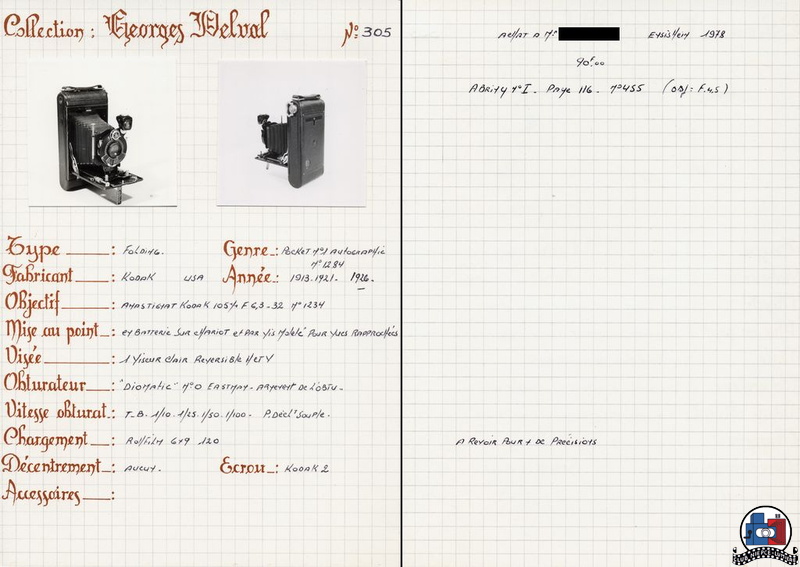 Collection : Georges Delval N° 305
Type : Folding.
Genre : Pocket n°1 Autographic
n° 1284
Fabricant : Kodak USA
Année : 1913.1921. 1926.
Objectif : Anastigmat Kodak 105% F 6,3 - 32 n° 1234
Mise au point : en Batterie sur chariot et par vis Moleté pour vues rapprochées
Visée : 1 viseur clair reversible H et V
Obturateur : "Diomatic" n°0 Eastman - Armement de l'obtu.
Vitesse obturat. : T. B. 1/10. 1/25. 1/50. 1/100 - P. Déclt Souple.
Chargement : Rollfilm 6x9 120
Décentrement : aucun.
Ecrou : Kodak 2
Accessoires :
Achat a Mr Ensisheim 1978
90f.00
Abring n°I - Page 116. n°455 (obj : F.4,5)
A revoir pour + de précisions